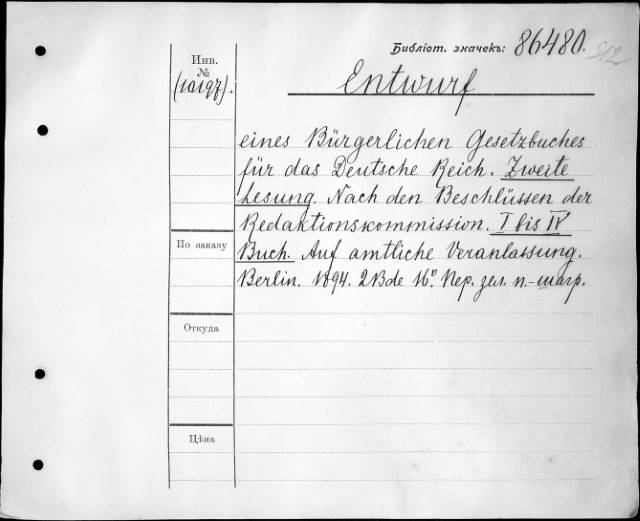 Библіот. значекъ: 86480. 912
Инв.
№
(10197).
Entwurf
eines Bürgerlichen Gesetzbuches
für das Deutsche Reich. Zweite
Lesung. Nach den Beschlüssen der
Redaktionskommission. I bis IV
Buch. Auf amtliche Veranlassung.
Berlin. 1894. 2 Bde 16º. Пер. зел. п.-шагр.
По заказу
Откуда
Цѣна